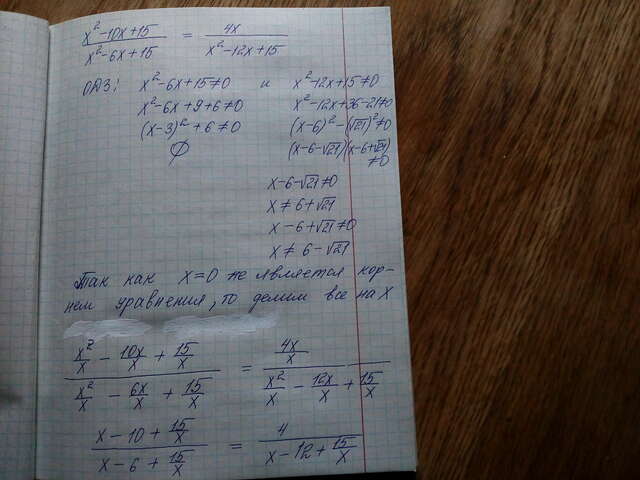 x²-10x+15 / x²-6x+15 = 4x / x²-12x+15
ОДЗ: x²-6x+15≠0 и x²-12x+15≠0
x²-6x+9+6≠0 x²-12x+36-21≠0
(x-3)²+6≠0 (x-6)²-(√21)²≠0
∅ (x-6-√21)(x-6+√21)
≠0
x-6-√21≠0
x≠6+√21
x-6+√21≠0
x≠6-√21
Так как x=0 не является кор-
нем уравнения, то делим все на x
x²/x - 10x/x + 15/x / x²/x - 6x/x + 15/x = 4x/x / x²/x - 12x/x + 15/x
x-10+15/x / x-6+15/x = 4 / x-12+15/x